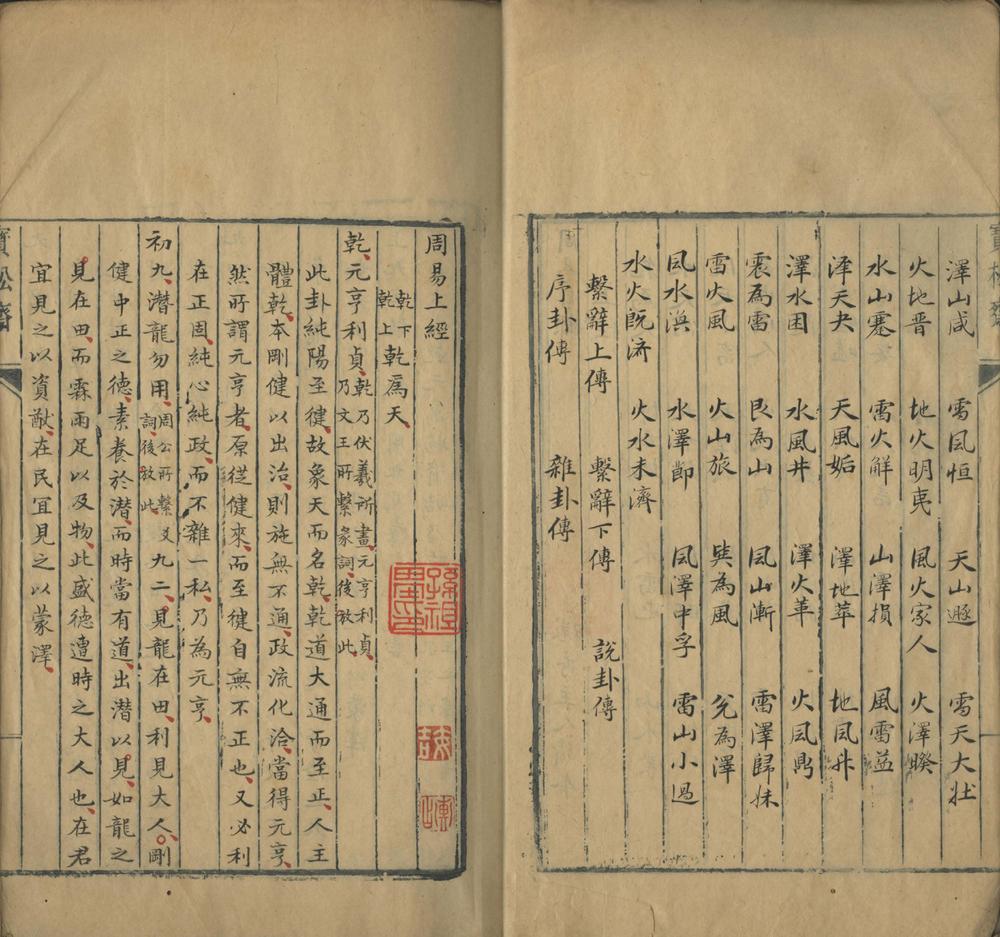 澤山咸 雷風恒 天山遯 雷天大壮
火地晋 地火明夷 風火家人 火澤睽
水山蹇 雷火解 山澤損 風雷益
泽天夬 天風姤 澤地萃 地風升
澤水困 水風井 澤火革 火風鼎
震為雷 艮為山 風山漸 雷澤歸妹
雷火風 火山旅 巽為風 兌為澤
風水渙 水澤節 風澤中孚 雷山小過
水火旣济 火水未濟
繫辭上傳 繫辭下傳 說卦傳
序卦傳 雜卦傳
周易上經
乾下乾上 乾爲天
乾元亨利貞 乾乃伏羲所畫元亨利貞乃文王所繫彖詞後放此
此卦純陽至健故象天而名乾乾道大通而至正人主
體乾本剛健以出治則施無不通政流化洽當得元亨
然所謂元亨者原從健來而至健自無不正也又必利
在正固純心純政而不雜一私乃為元亨
初九潛龍勿用 周公所繫爻詞後放此 九二見龍在田利見大人 剛
健中正之德素養於潛而時當有道出潛以見如龍之
見在田而霖雨足以及物此盛德遭時之大人也在君
宜見之以資猷在民宜見之以蒙澤